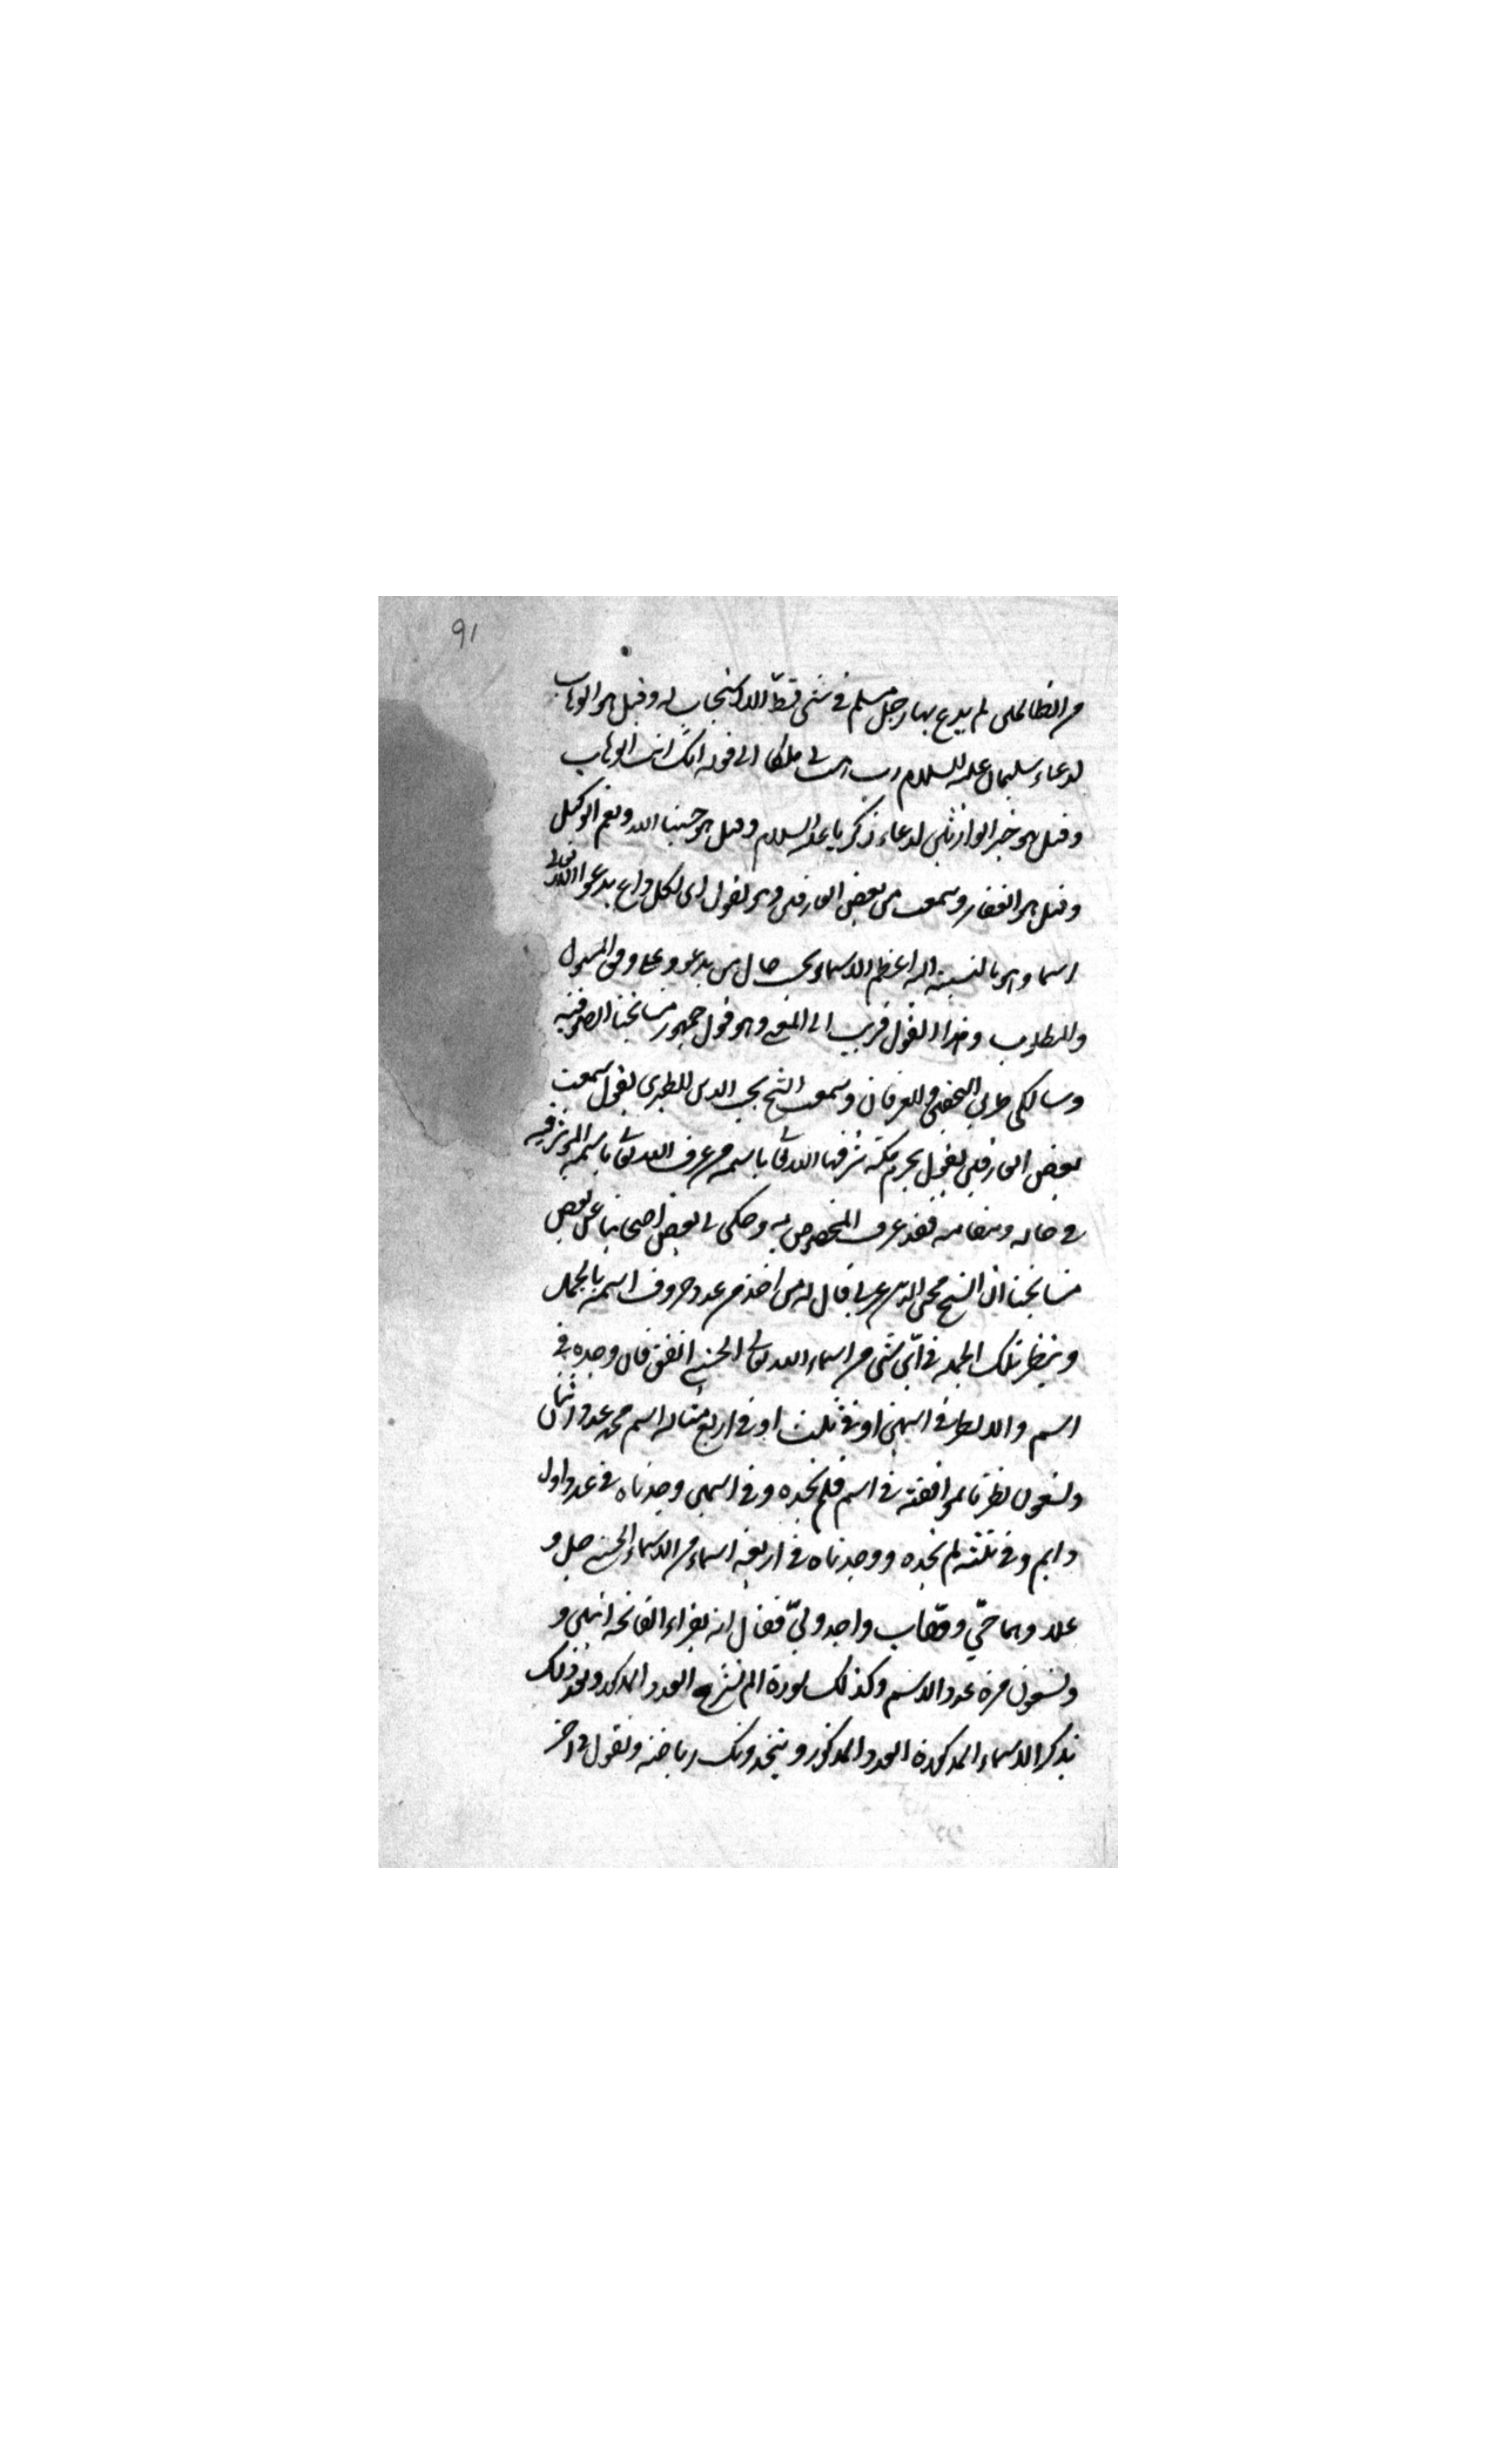 91
من الظالمين لم يدع بها رجل مسلم في شئ قط الا استجاب له وقيل هو الوهاب
لدعاء سليمان عليه السلام رب هب لي ملكا الى قوله انك انت الوهاب
وقيل هو خير الوارثين لدعاء زكريا عليه السلام وقيل هو حسبنا الله ونعم الوكيل
وقيل هو الغفار وسمعت من بعض العارفين وهو يقول ان لكل داع يدعوا الله تعالى
اسما وهو بالنسبة اليه اعظم الاسماء بحسب حال من يدعو وعلى وفق المسؤل
والمطلوب وهذا القول قريب الى المنع وهو قول جمهور مشايخنا الصوفية
وسالكي طريق التحقيق والعرفان وسمعت الشيخ محب الدين الطبري يقول سمعت
بعض العارفين يقول بحرم مكة شرفها الله تعالى باسمه من عرف الله تعالى باسمه المؤثر فيه
في حاله ومقامه فقد عرف المخصوص به وحكى لي بعض اصحابنا عن بعض
مشايخنا ان الشيخ محي الدين عربي قال له من اخذ من عدد حروف اسمه بالجمل
وينظر تلك الجملة في اي شئ من اسماء الله تعالى الحسنى اتفق فان وجده في
اسم والا نظر في اسمين او في ثلث او في اربع مثاله اسم محمد عدد اثنان
وتسعون نظرنا موافقته في اسم فلم نجده وفي اسمين وجدناه في عدد اول
دايم وفي ثلثة لم نجده ووجدناه في اربعة اسماء من الاسماء الحسنى جل و
علا وهما حيّ وهّاب واجد وليّ فقال انه يقراء الفاتحة اثنين و
وتسعون مرة عدد الاسم وكذلك سورة الم نشرح العدد المذكور وبعد ذلك
يذكر الاسماء المذكورة العدد المذكور ويتخذ ذلك رياضة ويقول في اخر